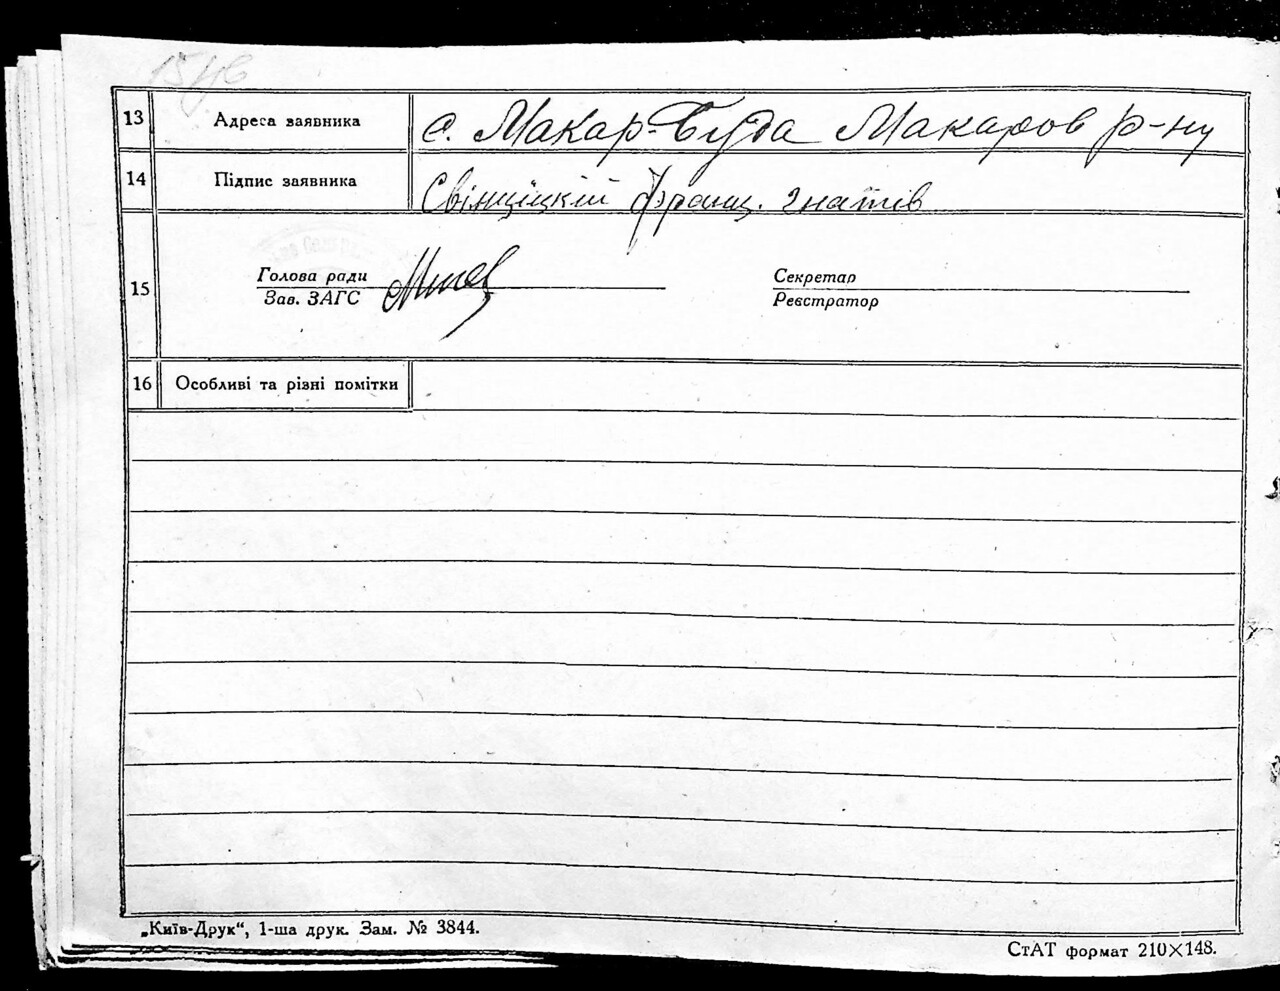 13 Адреса заявника с. Макар-Буда Макаров р-ну
14 Підпис заявника Свінціцкій Франц. Гнатів
15 Голова ради Секретар
Зав. ЗАГС Реєстратор
16 Особливі та різні помітки
„Київ-Друк“, 1-ша друк. Зам. № 3844.
СтАТ формат 210×148.